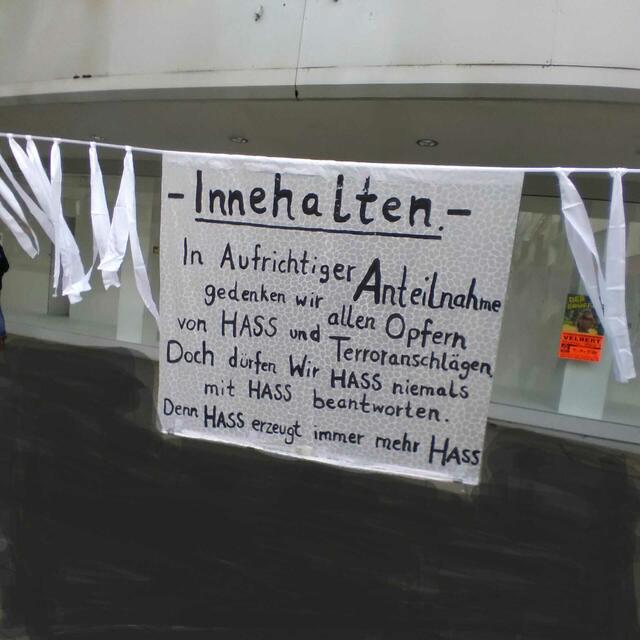 - Innehalten. -
In Aufrichtiger Anteilnahme
gedenken wir allen Opfern
von HASS und Terroranschlägen
Doch dürfen Wir HASS niemals
mit HASS beantworten.
Denn HASS erzeugt immer mehr HASS
VELBERT